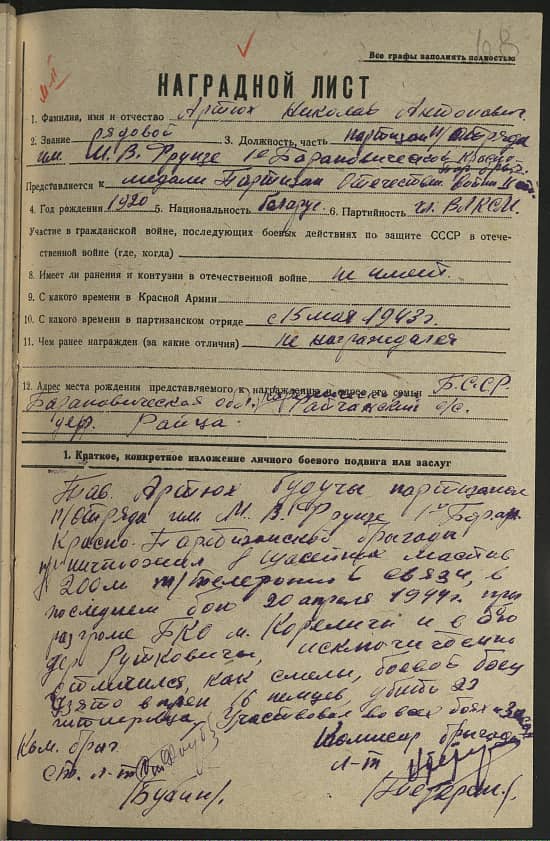 108
Все графы заполнять полностью
НАГРАДНОЙ ЛИСТ
1. Фамилия, имя и отчество Артюх Николай Антонович
2. Звание рядовой 3. Должность, часть партизан п/отряда
им. М.В. Фрунзе 1й Барановической Красно
Представляется к медали Партизан Отечествен. войны II ст.
4. Год рождения 1920 5. Национальность беларус 6. Партийность чл. ВЛКСМ
Участие в гражданской войне, последующих боевых действиях по защите СССР в отече-
ственной войне (где, когда)
8. Имеет ли ранения и контузии в отечественной войне не имеет.
9. С какого времени в Красной Армии
10. С какого времени в партизанском отряде с 15 мая 1943г.
11. Чем ранее награжден (за какие отличия) не награждался
12. Адрес места рождения представляемого к награждению и адрес его семьи БССР
Барановическая обл. Райчанский с/с.
дер. Райца.
1. Краткое, конкретное изложение личного боевого подвига или заслуг
Тов. Артюх будучы партизаном
п/отряда им М. В. Фрунзе 1й Баран.
Красно-Партизанской брыгады
уничтожил 8 шасейных мостов
200м т/телефонной связи, в
последнем бою 20 апреля 1944г. при
разгроме БКО м. Кореличи и в бою
дер Рутковичы, исключительно
отличился, как смелый, боевой боец
взято в плен 16 немцев, убито 22
гитлеровца. Участвовал во всех боях
Ком. брыг. Комисар брыгады
ст. л-т л-т